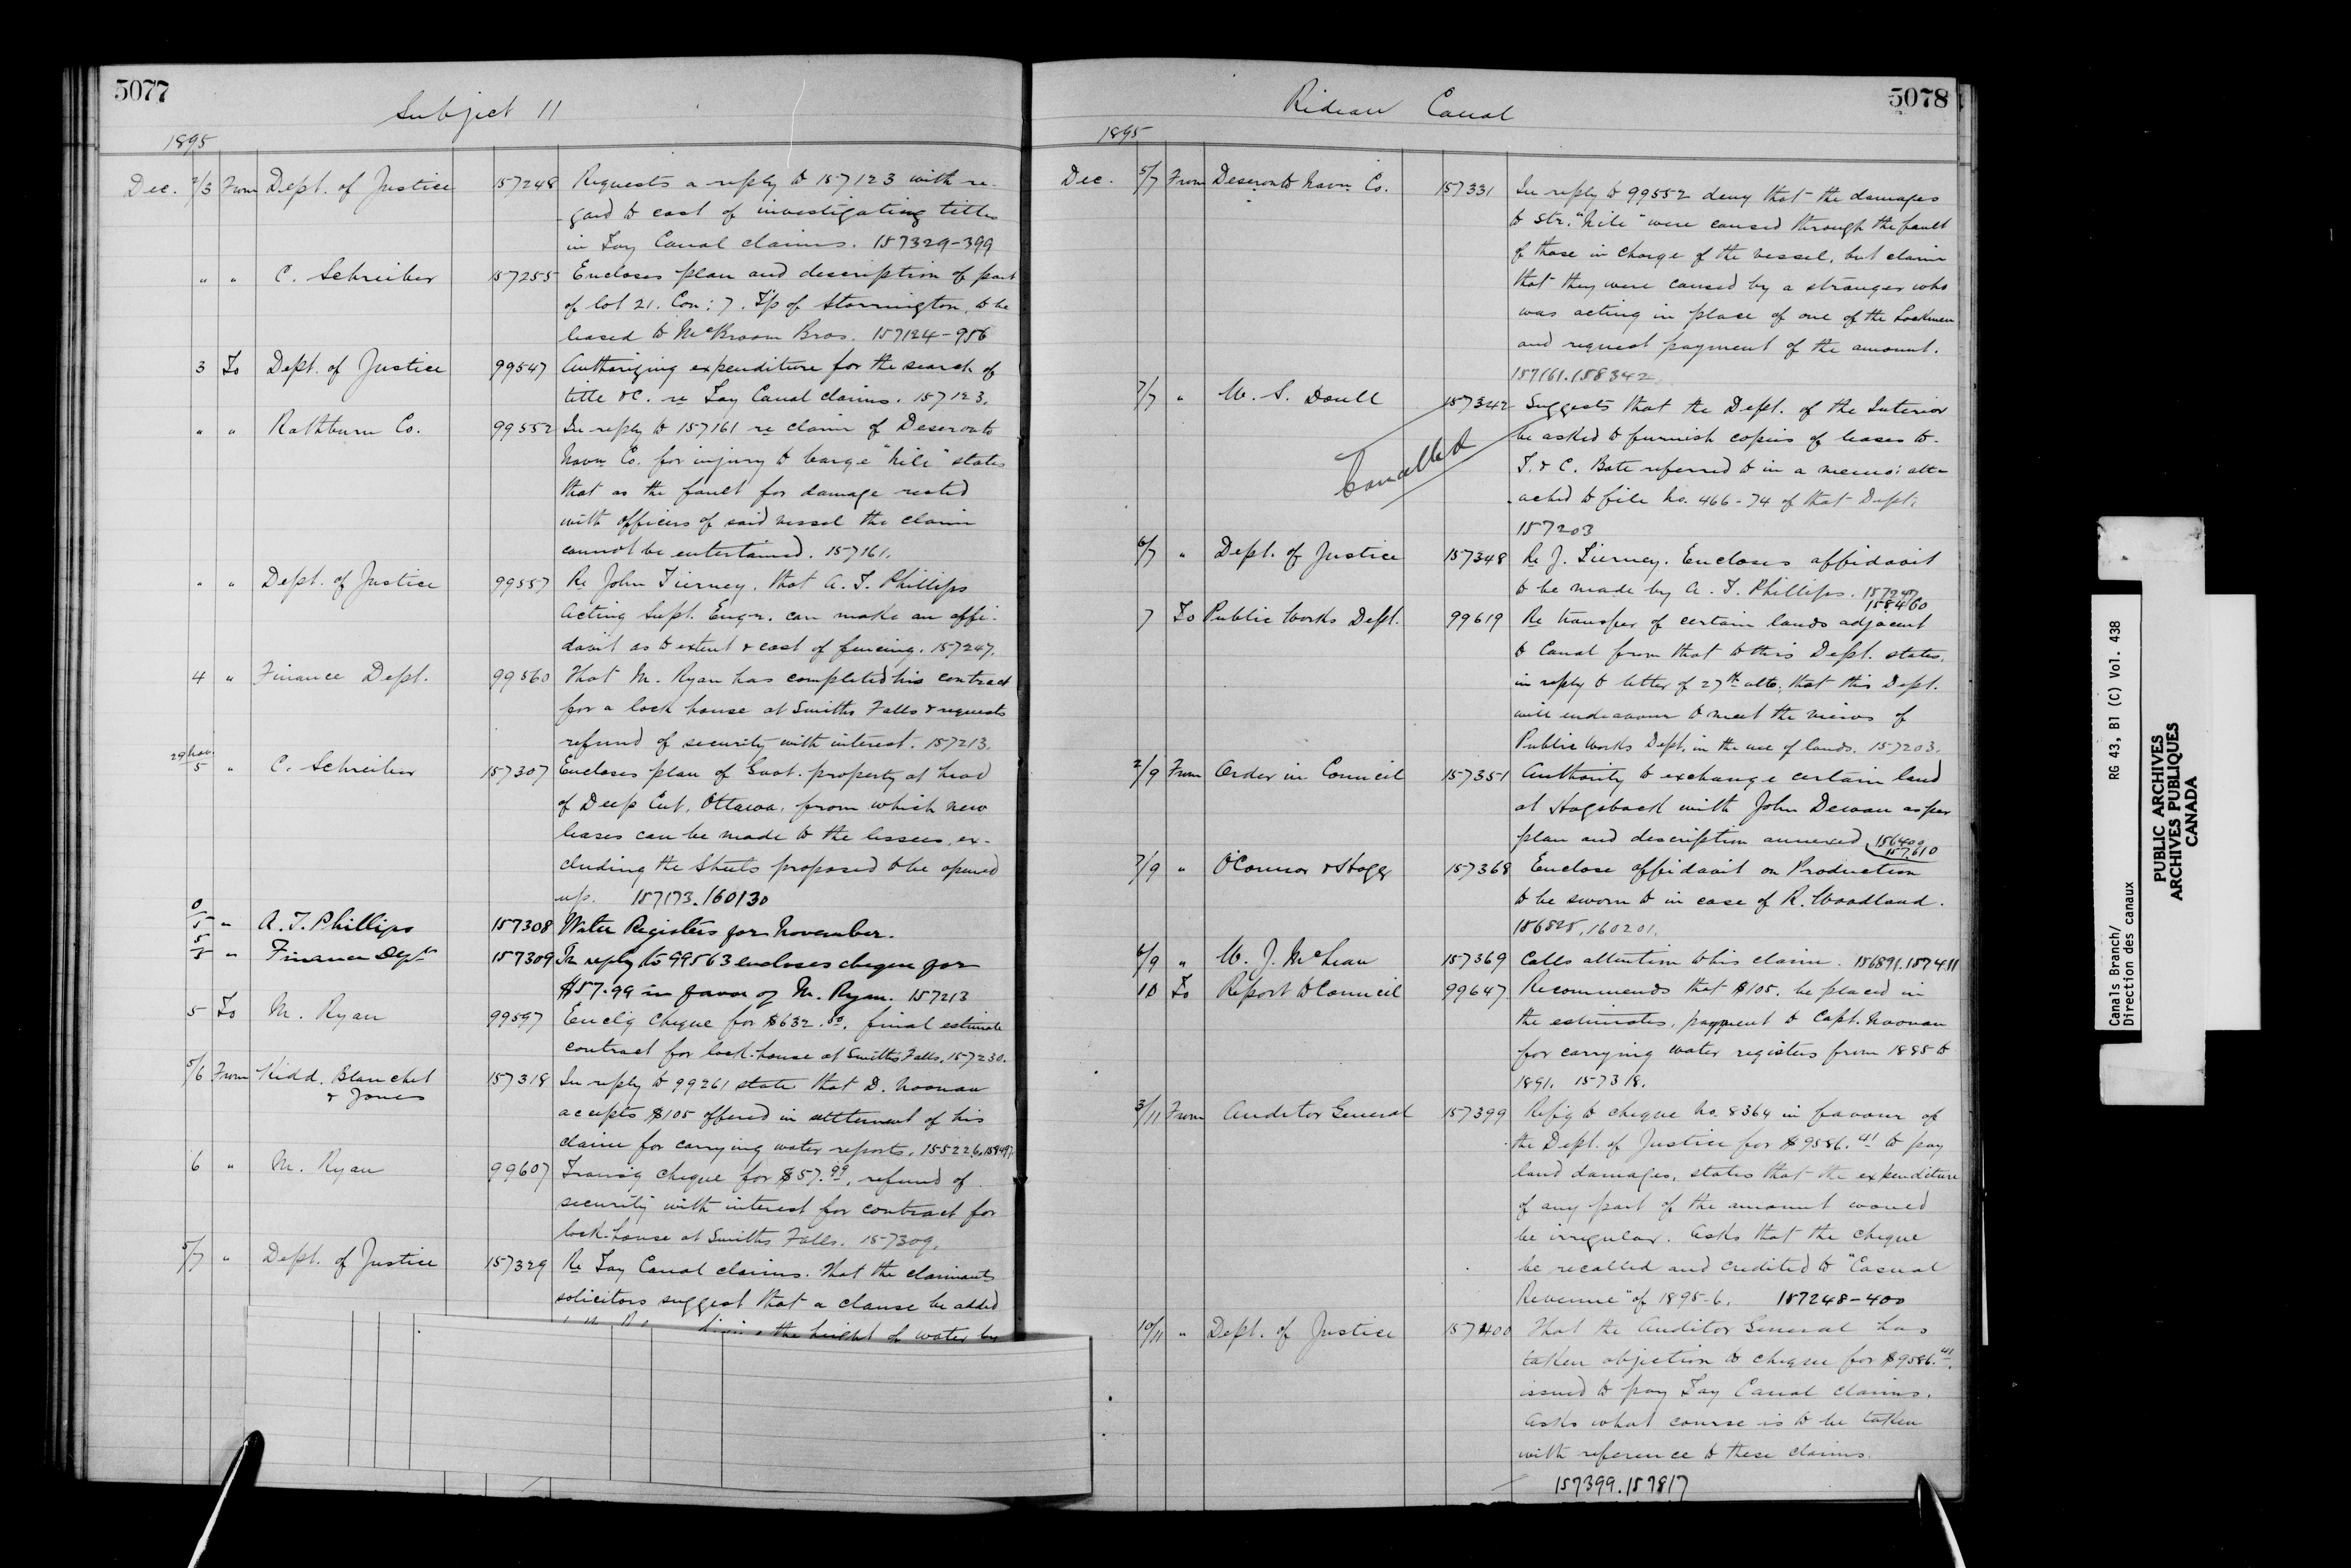 5077
Subject 11
1895
Dec. 2/3 From Dept. of Justice 157248 Requests a reply to 157123 with re-
gard to cost of investigating titles
in Tay Canal claims. 157329-399
" " C. Schreiber 157255 Encloses plan and description of part
of lot 21. Con: 7. T'p of Storrington, to be
leased to McBroom Bros. 157124-956
3 To Dept. of Justice 99547 Authorizing expenditure for the search of
title &c. re Tay Canal claims. 157123.
" " Rathburn Co. 99552 In reply to 157161 re claim of Deseronto
Navn Co. for injury to barge "Nile" states
that as the fault for damage rested
with officers of said vessel the claim
cannot be entertained. 157161.
" " Dept. of Justice 99557 Re John Tierney. that A. T. Phillips
Acting Supt. Engr. can make an affi-
davit as to extent & cost of fencing. 157247.
4 " Finance Dept. 99560 That M. Ryan has completed his contract
for a lock house at Smiths Falls & requests
refund of security with interest. 157213.
29 Nov.
5 " C. Schreiber 157307 Encloses plan of Govt. property at head
of Deep Cut, Ottawa, from which new
leases can be made to the lessees, ex-
cluding the Streets proposed to be opened
up. 157173.160130
5 " A. T. Phillips 157308 Water Registers for November.
5/5 " Finance Dept 157309 In reply to 99563 encloses cheque for
$57.99 in favor of M. Ryan. 157213
5 To M. Ryan 99597 Encl'g cheque for $632.80, final estimate
contract for lock-house at Smiths Falls. 157230.
5/6 From Kidd, Blanchet 157318 In reply to 99261 state that D. Noonan
& Jones
accepts $105 offered in settlement of his
claim for carrying water reports. 155226.
6 " M. Ryan 99607 Transg cheque for $57.99, refund of
security with interest for contract for
lock-house at Smiths Falls. 157309.
5/7 " Dept. of Justice 157329 Re Tay Canal claims. That the claimants
solicitors suggest that a clause be added
the height of water by
Rideau Canal
5078
1895
Dec. 5/7 From Deseronto Navn Co. 157331 In reply to 99552 deny that the damages
to Str. "Nile" were caused through the fault
of those in charge of the vessel, but claim
that they were caused by a stranger who
was acting in place of one of the Lockmen
and request payment of the amount.
157161.158342.
7/7 " W. S. Doull 157342 Suggests that the Dept. of the Interior
be asked to furnish copies of leases to
Cancelled
T. & C. Bate referred to in a memo: att-
ached to file No. 466-74 of that Dept.
157203
6/7 " Dept. of Justice 157348 Re J. Tierney. Encloses affidavit
to be made by A. T. Phillips. 157247
158460
7 To Public Works Dept. 99619 Re transfer of certain lands adjacent
to Canal from that to this Dept. states,
in reply to letter of 27th ulto, that this Dept.
will endeavour to meet the views of
Public Works Dept. in the use of lands. 157203.
2/9 From Order in Council 157351 Authority to exchange certain land
at Hogsback with John Dewan as per
plan and description annexed 156400
157610
7/9 " O'Connor & Hogg 157368 Enclose affidavit on Production
to be sworn to in case of R. Woodland.
156828.160201.
6/9 " W. J. McLean 157369 Calls attention to his claim. 156891.157411
10 To Report to Council 99647 Recommends that $105. be placed in
the estimates, payment to Capt. Noonan
for carrying water registers from 1885 to
1891. 157318.
3/11 From Auditor General 157399 Ref'g to cheque No. 8364 in favour of
the Dept. of Justice for $9586.41 to pay
land damages, states that the expenditure
of any part of the amount would
be irregular. Asks that the cheque
be recalled and credited to "Casual
Revenue" of 1895-6. 157248-400
10/11 " Dept. of Justice 157400 That the Auditor General has
taken objection to cheque for $9586.41.
issued to pay Tay Canal claims.
Asks what course is to be taken
with reference to these claims.
157399.157817
Canals Branch/
Direction des canaux
RG 43, B1 (C) Vol. 438
PUBLIC ARCHIVES
ARCHIVES PUBLIQUES
CANADA